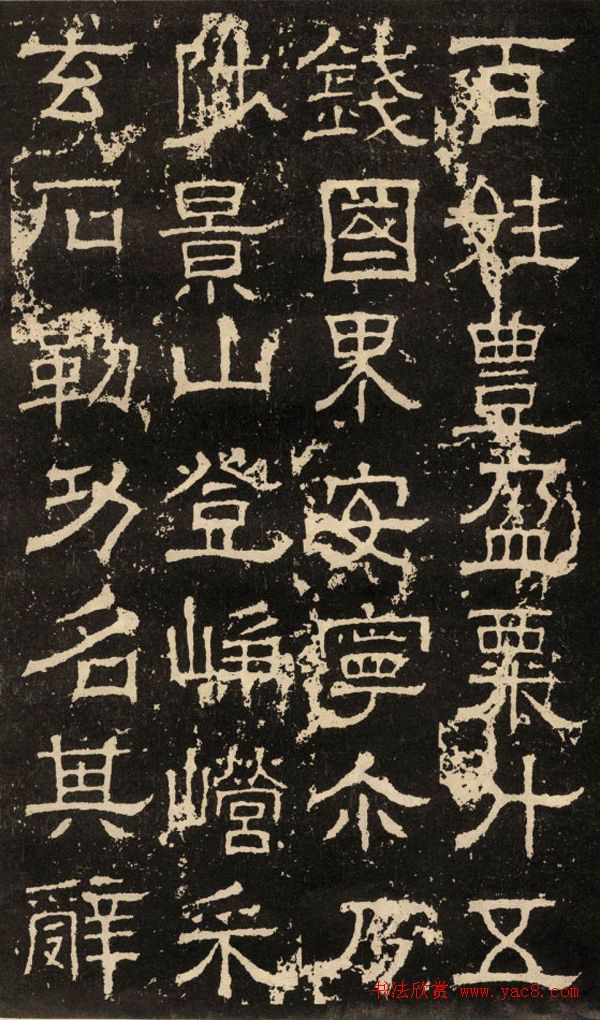 百姓豊盈粟斗五
錢國界安寧尒乃
陟景山登崢嶸采
玄石勒功名其辭
书法欣赏 www.yac8.com